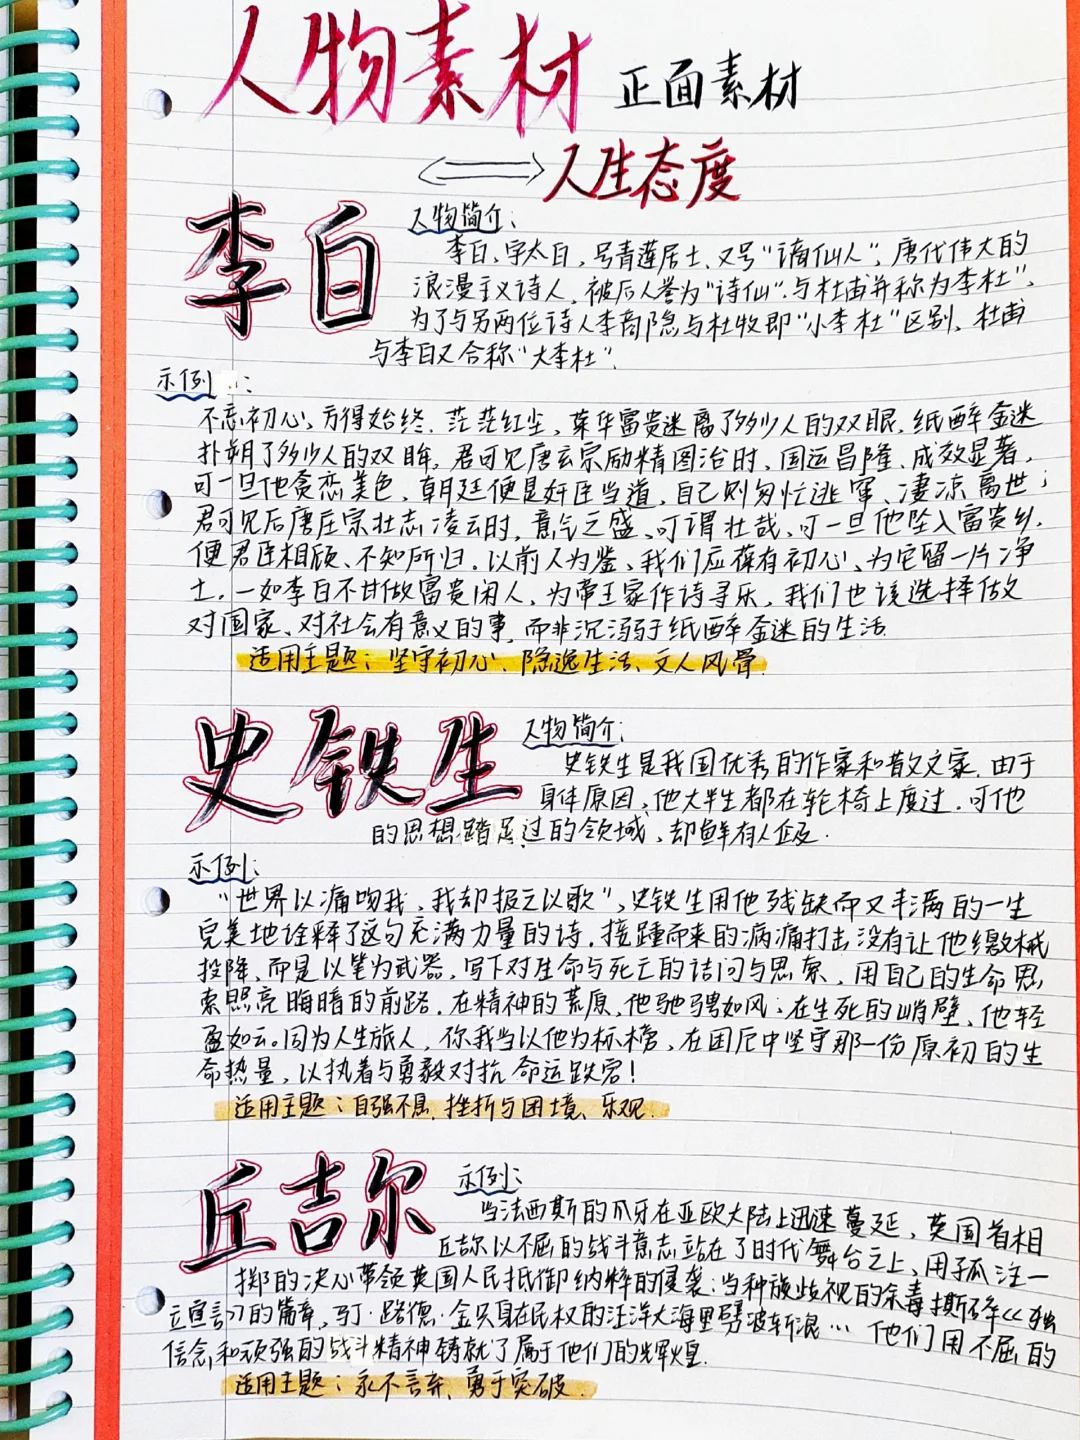 人物素材 正面素材
人生态度
李白
人物简介：
李白，字太白，号青莲居士，又号"谪仙人"，唐代伟大的
浪漫主义诗人，被后人誉为"诗仙"，与杜甫并称为李杜"，
为了与另两位诗人李商隐与杜牧即"小李杜"区别，杜甫
与李白又合称"大李杜"．
示例：
不忘初心，方得始终．茫茫红尘，荣华富贵迷离了多少人的双眼，纸醉金迷
扑朔了多少人的双眸．君可见唐玄宗励精图治时，国运昌隆，成效显著，
可一旦他贪恋美色，朝廷便是奸臣当道，自己则匆忙逃窜、凄凉离世；
君可见后唐庄宗壮志凌云时，意气之盛，可谓壮哉，可一旦他坠入富贵乡，
便君臣相顾，不知所归．以前人为鉴，我们应葆有初心，为它留一片净
土．一如李白不甘做富贵闲人，为帝王家作诗寻乐，我们也该选择做
对国家、对社会有意义的事，而非沉溺于纸醉金迷的生活．
适用主题：坚守初心、隐逸生活、文人风骨．
史铁生
人物简介：
史铁生是我国优秀的作家和散文家．由于
身体原因，他大半生都在轮椅上度过．可他
的思想踏足过的领域，却鲜有人企及．
示例：
"世界以痛吻我，我却报之以歌"，史铁生用他残缺而又丰满的一生
完美地诠释了这句充满力量的诗．接踵而来的病痛打击没有让他缴械
投降，而是以笔为武器，写下对生命与死亡的诘问与思索，用自己的生命思
索照亮晦暗的前路．在精神的荒原，他驰骋如风；在生死的峭壁，他轻
盈如云。同为人生旅人，你我当以他为标榜，在困厄中坚守那一份原初的生
命热量，以执着与勇毅对抗命运跌宕！
适用主题：自强不息，挫折与困境、乐观．
丘吉尔
示例：
当法西斯的爪牙在亚欧大陆上迅速蔓延，英国首相
丘吉尔以不屈的战斗意志站在了时代舞台之上，用孤注一
掷的决心带领英国人民抵御纳粹的侵袭；当种族歧视的余毒撕碎《独
立宣言》的篇章，马丁·路德·金只身在民权的汪洋大海里劈波斩浪…他们用不屈的
信念和顽强的战斗精神铸就了属于他们的辉煌．
适用主题：永不言弃、勇于突破．